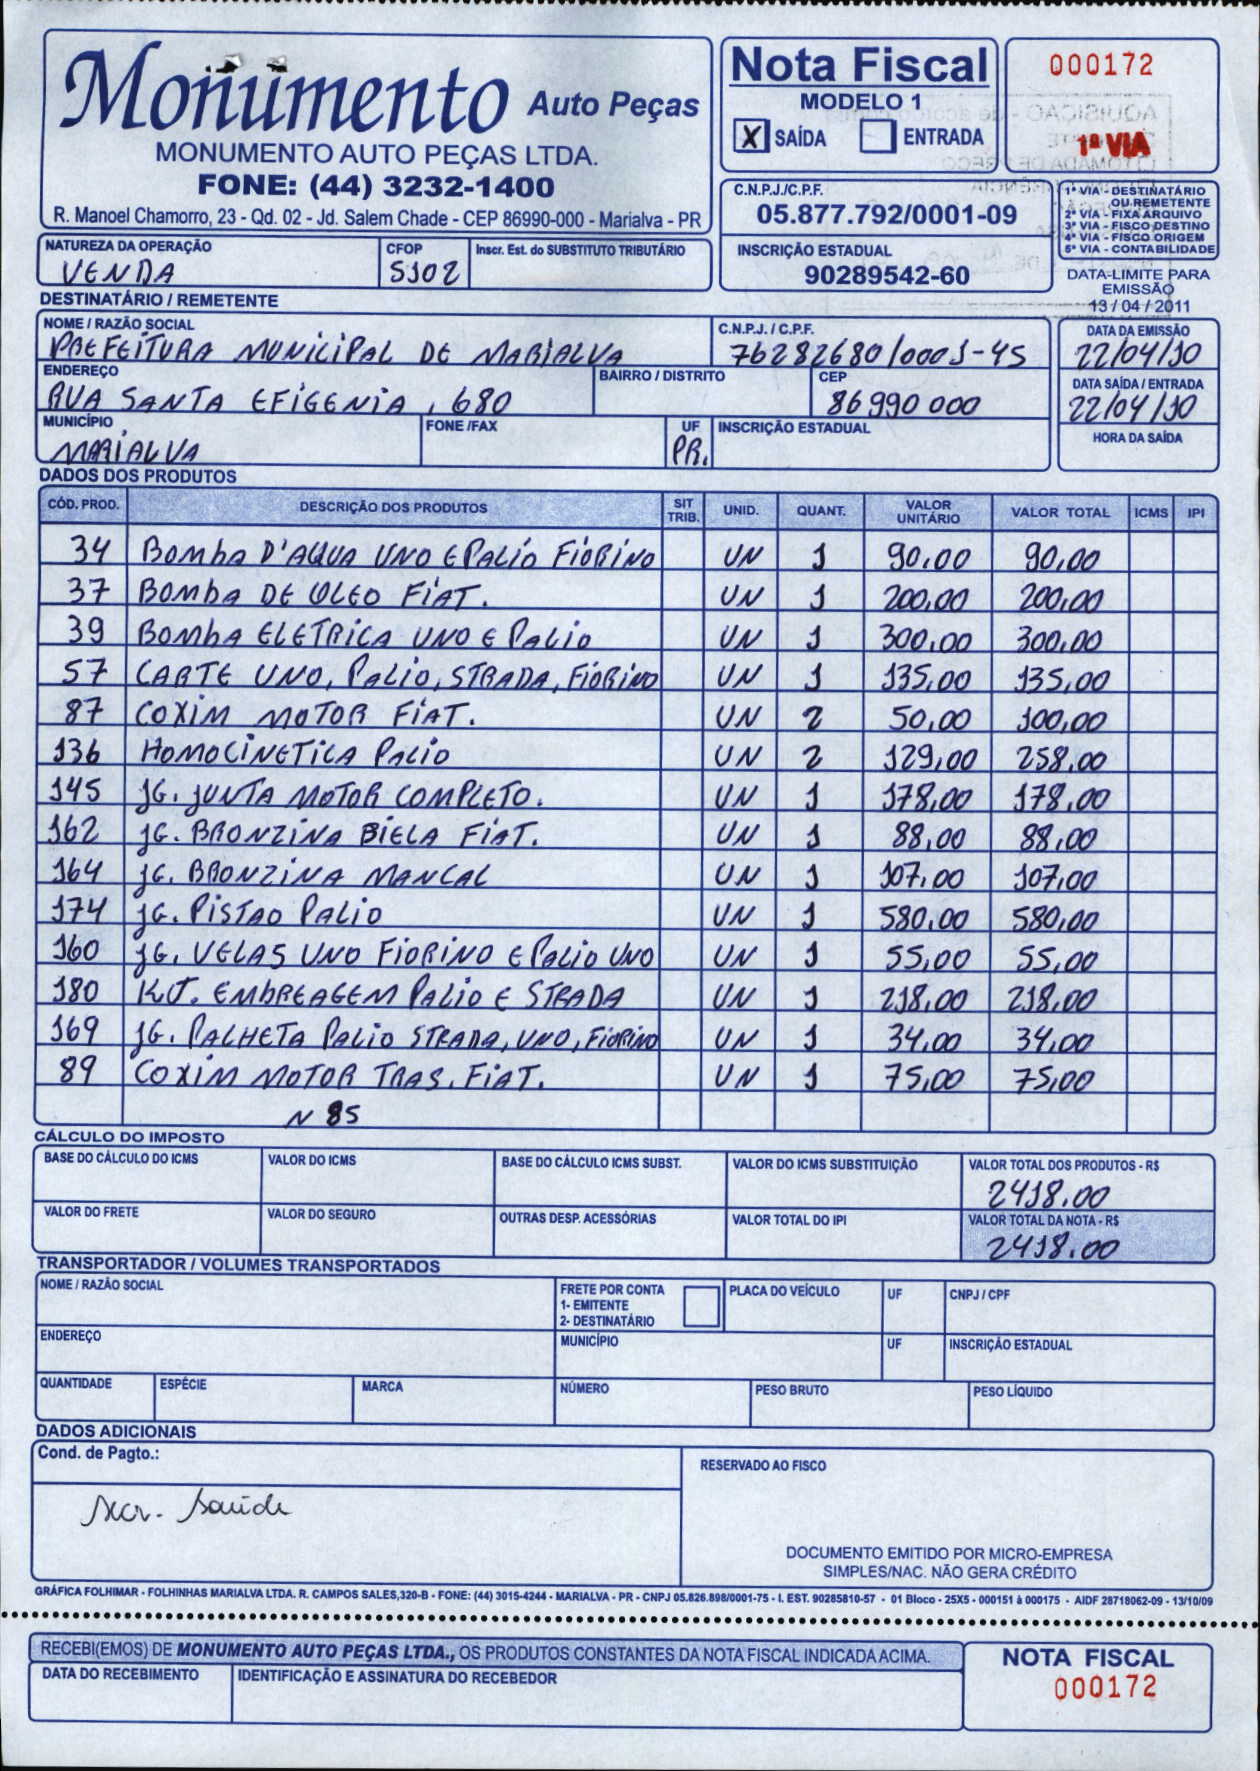 Monumento Auto Peças
MONUMENTO AUTO PEÇAS LTDA.
FONE: (44) 3232-1400
R. Manoel Chamorro, 23 - Qd. 02 - Jd. Salem Chade - CEP 86990-000 - Marialva - PR
Nota Fiscal
MODELO 1
X SAÍDA ENTRADA
000172
1ª VIA
C.N.P.J./C.P.F.
05.877.792/0001-09
INSCRIÇÃO ESTADUAL
90289542-60
1ª VIA - DESTINATÁRIO
OU REMETENTE
2ª VIA - FIXA ARQUIVO
3ª VIA - FISCO DESTINO
4ª VIA - FISCO ORIGEM
5ª VIA - CONTABILIDADE
DATA-LIMITE PARA
EMISSÃO
13 / 04 / 2011
NATUREZA DA OPERAÇÃO CFOP Inscr. Est. do SUBSTITUTO TRIBUTÁRIO
VENDA 5102
DESTINATÁRIO / REMETENTE
NOME / RAZÃO SOCIAL C.N.P.J. / C.P.F. DATA DA EMISSÃO
PREFEITURA MUNICIPAL DE MARIALVA 76282680/0001-45 22/04/10
ENDEREÇO BAIRRO / DISTRITO CEP DATA SAÍDA / ENTRADA
RUA SANTA EFIGENIA, 680 86990 000 22/04/10
MUNICÍPIO FONE /FAX UF INSCRIÇÃO ESTADUAL HORA DA SAÍDA
MARIALVA PR.
DADOS DOS PRODUTOS
CÓD. PROD. DESCRIÇÃO DOS PRODUTOS SIT TRIB. UNID. QUANT. VALOR UNITÁRIO VALOR TOTAL ICMS IPI
34 BOMBA D'AQUA UNO E PALIO FIORINO UN 1 90,00 90,00
37 BOMBA DE OLEO FIAT. UN 1 200,00 200,00
39 BOMBA ELETRICA UNO E PALIO UN 1 300,00 300,00
57 CARTE UNO, PALIO, STRADA, FIORINO UN 1 135,00 135,00
87 COXIM MOTOR FIAT. UN 2 50,00 100,00
136 HOMOCINETICA PALIO UN 2 129,00 258,00
145 JG. JUNTA MOTOR COMPLETO. UN 1 178,00 178,00
162 JG. BRONZINA BIELA FIAT. UN 1 88,00 88,00
164 JG. BRONZINA MANCAL UN 1 107,00 107,00
174 JG. PISTAO PALIO UN 1 580,00 580,00
160 JG. VELAS UNO FIORINO E PALIO UNO UN 1 55,00 55,00
180 KIT. EMBREAGEM PALIO E STRADA UN 1 218,00 218,00
169 JG. PALHETA PALIO STRADA, UNO, FIORINO UN 1 34,00 34,00
89 COXIM MOTOR TRAS. FIAT. UN 1 75,00 75,00
N 85
CÁLCULO DO IMPOSTO
BASE DO CÁLCULO DO ICMS VALOR DO ICMS BASE DO CÁLCULO ICMS SUBST. VALOR DO ICMS SUBSTITUIÇÃO VALOR TOTAL DOS PRODUTOS - R$
2418,00
VALOR DO FRETE VALOR DO SEGURO OUTRAS DESP. ACESSÓRIAS VALOR TOTAL DO IPI VALOR TOTAL DA NOTA - R$
2418,00
TRANSPORTADOR / VOLUMES TRANSPORTADOS
NOME / RAZÃO SOCIAL FRETE POR CONTA PLACA DO VEÍCULO UF CNPJ / CPF
1- EMITENTE
2- DESTINATÁRIO
ENDEREÇO MUNICÍPIO UF INSCRIÇÃO ESTADUAL
QUANTIDADE ESPÉCIE MARCA NÚMERO PESO BRUTO PESO LÍQUIDO
DADOS ADICIONAIS
Cond. de Pagto.:
RESERVADO AO FISCO
Secr. Saúde
DOCUMENTO EMITIDO POR MICRO-EMPRESA
SIMPLES/NAC. NÃO GERA CRÉDITO
GRÁFICA FOLHIMAR - FOLHINHAS MARIALVA LTDA. R. CAMPOS SALES,320-B - FONE: (44) 3015-4244 - MARIALVA - PR - CNPJ 05.826.898/0001-75 - I. EST. 90285810-57 - 01 Bloco - 25X5 - 000151 à 000175 - AIDF 28718062-09 - 13/10/09
RECEBI(EMOS) DE MONUMENTO AUTO PEÇAS LTDA., OS PRODUTOS CONSTANTES DA NOTA FISCAL INDICADA ACIMA.
DATA DO RECEBIMENTO IDENTIFICAÇÃO E ASSINATURA DO RECEBEDOR
NOTA FISCAL
000172